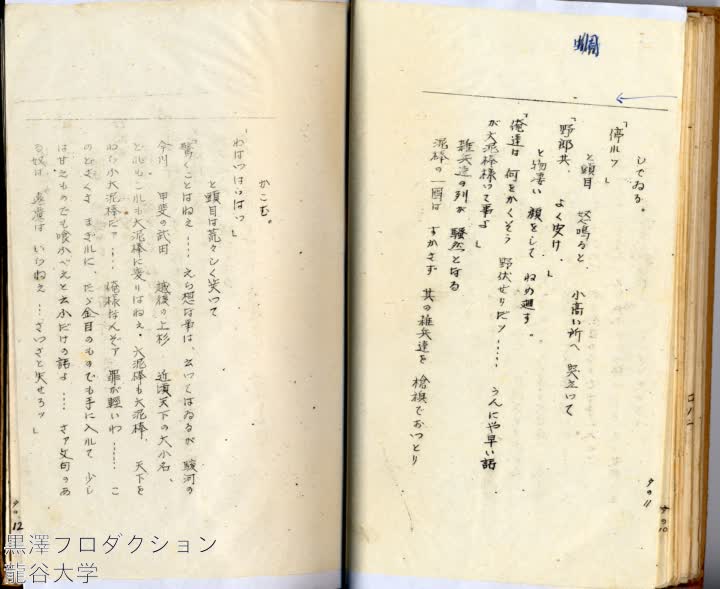 してゐる。
「停ルッ」
と頭目 怒鳴ると、小高い所へ 突立つて
「野郎共、よく突け、」
と物凄い顔をして ねめ廻す。
「俺達は 何をかくそう 野伏せりだッ‥‥ うんにや早い話
が大泥棒様って事よ」
雑兵達の列が 騒然となる
泥棒の一団は すかさず 其の雑兵達を 槍襖でおつとり
タの11
かこむ。
「わはつはつはつはつ」
と頭目は荒々しく笑つて
「驚くことはねえ‥‥ えら想な事は、云つてはゐるが 駿河の
今川 甲斐の武田 越後の上杉 近頃天下の大小名、
どれもこれも大泥棒に変りはねえ。大泥棒も大泥棒、天下を
ねらふ大泥棒だァ‥‥ 俺様なんざァ 罪が軽いわ‥‥‥ こ
のどさくさ まぎれに、たゞ金目のものでも手に入れて 少し
は甘えものでも喰ふべえと云ふだけの話よ‥‥ さァ文句のあ
る奴は 遠慮は いらねえ‥‥ さつさと失せろッ」
タの12
黒澤プロダクション
龍谷大学